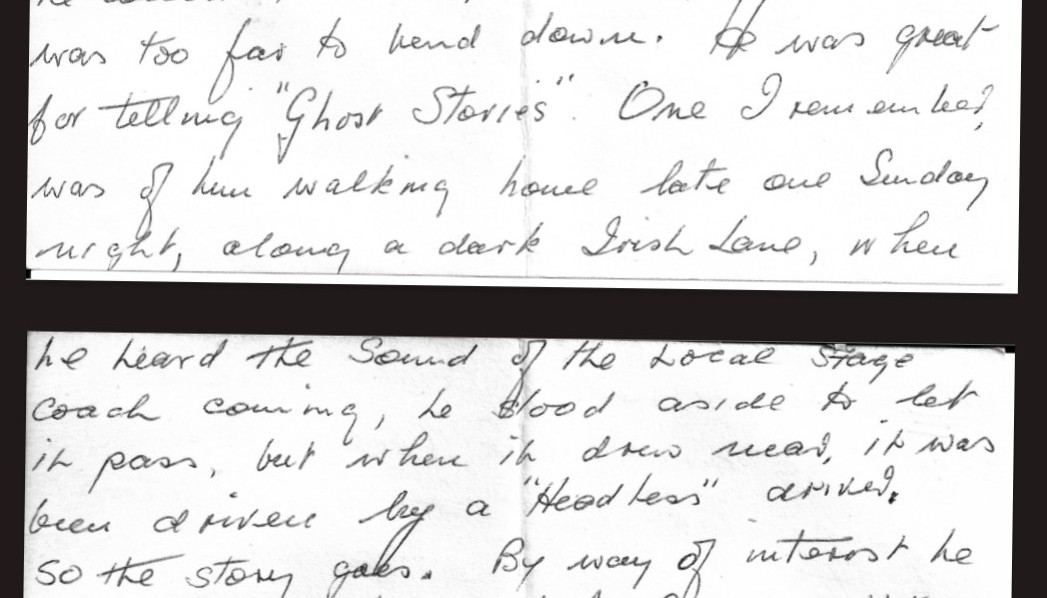 was too far to bend down. He was great
for telling "Ghost Stories". One I remember,
was of him walking home late one Sunday
night, along a dark Irish Lane, when
he heard the Sound of the Local Stage
coach coming, he stood aside to let
it pass, but when it drew near, it was
been driven by a "Headless" driver.
So the story goes. By way of interest he